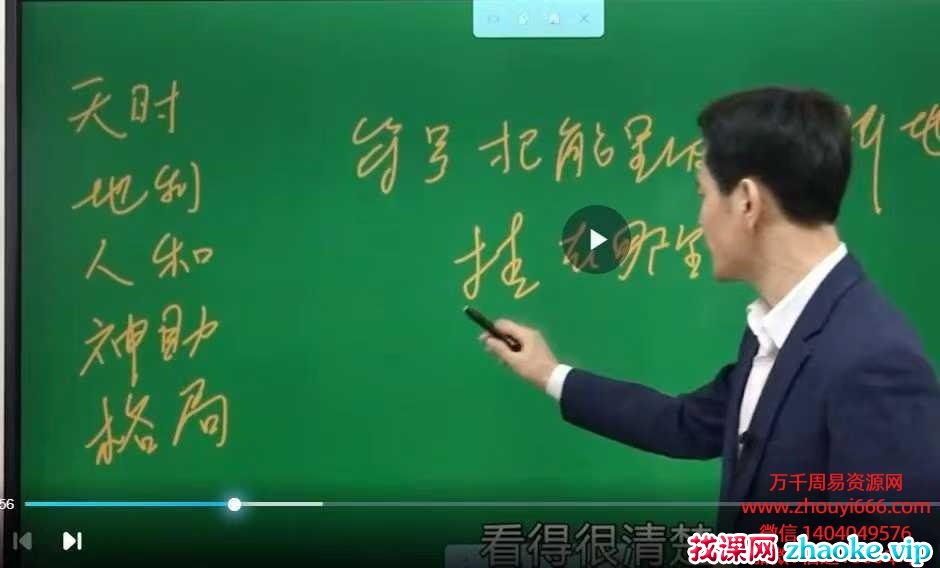 天时
地利
人和
神助
格局
符号 把能量
挂在哪里
56
看得很清楚
万千周易资源网
www.zhouyi666.com
微信 1404049576
找课网zhaoke.vip